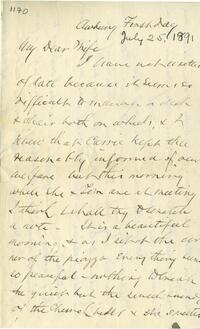 1170
Asbury First day
July 25, 1891
My Dear Wife
I have not written
of late because it seems so
difficult to manage a desk
& chair both on wheels & I
knew that Carrie kept thee
reasonably informed of our
welfare but this morning
while she & Tom are at meeting
I think I shall try to write
a note. It is a beautiful
morning, & as I sit at the cor
ner of the piazza every thing seems
so peaceful - nothing to break
the quiet but the
of the & the